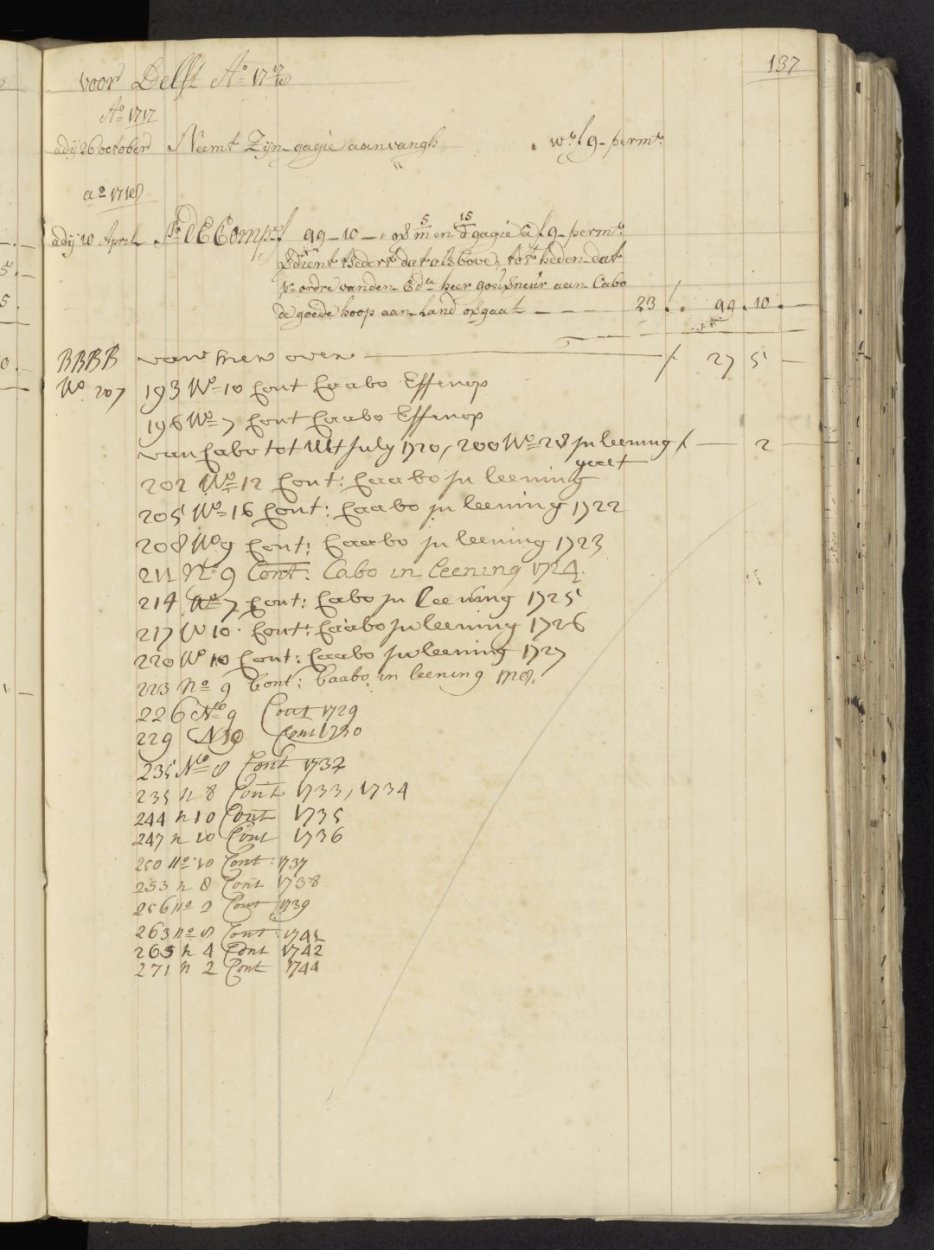 137
voor Delft Ao 17 17/18
Ao 1717
adij 26 october Neemt Zijn gagie aanvangh wt f 9 perm.t
ao 1718
adij 10 April Pr d E Comp.e f 99-10- off 5/m en 15/d gagie a f 9- perm.t
Sdient tsedert dat alsboven tot heden dat
pr ordre vanden Ed.e heer gouverneur aan Cabo
de goede hoop aan Land offgaat - - - 23 f. 99.10.-
BBBB van hier over f 27 5 -
No 207 193 No 10 Cont Caabo
196 No 7 Cont Caabo
van Cabo tot Ult July 1720, 200 No 28 in leening f - 2 -
gaet
202 No 12 Cont: Caabo in leening
205 No 16 Cont: Caabo in leening 1722
208 No 9 Cont: Caabo in leening 1723
211 No 9 Cont: Cabo in leening 1724.
214 No 7 Cont: Cabo in leening 1725
217 No 10 Cont: Caabo in leening 1726
220 No 10 Cont: Caabo in leening 1727
223 No 9 Cont: Caabo in leening 1728.
226 No 9 Cont 1729
229 N 10 Cont 1730
235 No 8 Cont 1732
235 n 8 Cont 1733, 1734
244 n 10 Cont 1735
247 n 10 Cont 1736
250 no 10 Cont: 1737
253 n 8 Cont 1738.
256 no 2 Cont 1739
263 no 8 Cont: 1741
265 n 4 Cont 1742
271 n 2 Cont 1744